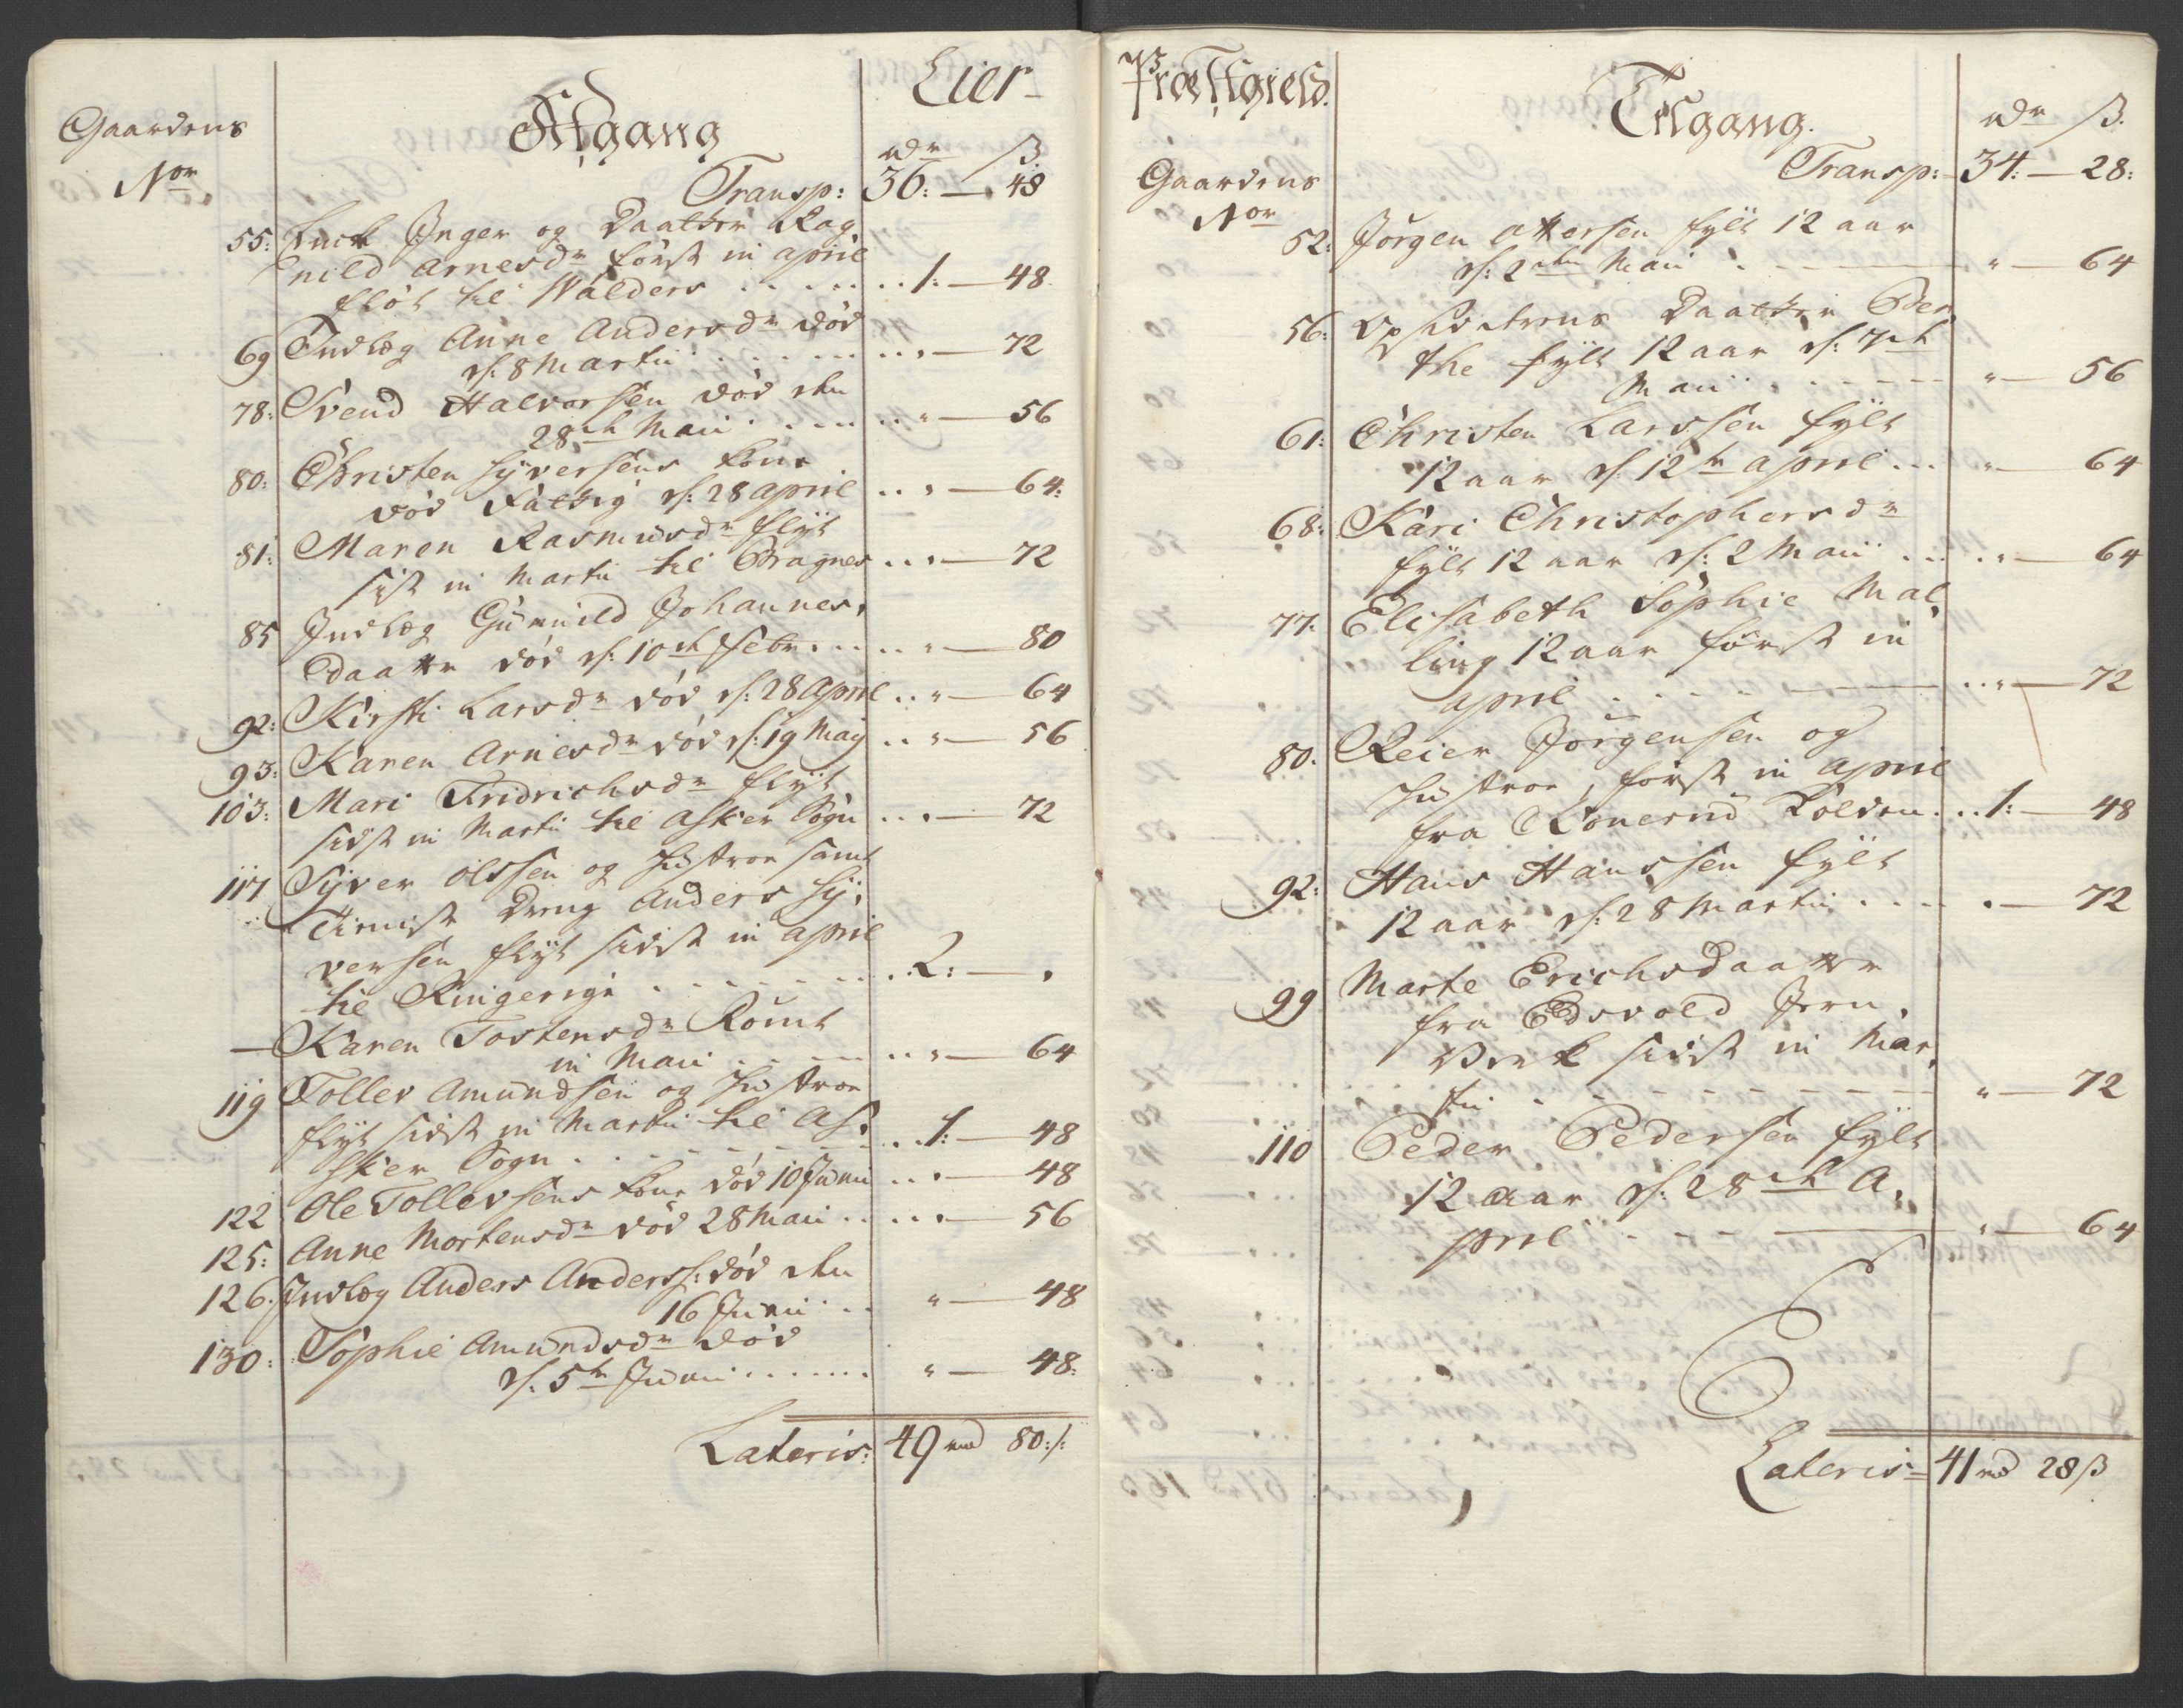 Lier
Gaardens
Nor
Afgang
rdr ß
Transp: 36: — 48
55: Enck Inger og Daatter Rag,
nild Arnesdr først in April
fløt til Walders . . . . . 1: — 48.
69 Indlæg Anne Andersdr død
d: 8 Martii . . . . . " — 72
78: Svend Halvorsen død den
28de Maii . . . . . " — 56
80: Christen Syversens Kone
død Fattig d: 28 April . . . " — 64:
81: Maren Rasmusdr flyt
sist in Martii til Bragnes . . . " — 72
85 Indlæg Gunnild Johannes,
daatter død d: 10de Febr. . . . " — 80
92: Kirsti Larsdr død d: 28 April . . " — 64
93: Karen Arnesdr død d: 19 Maij . . " — 56
103: Mari Fridrichsdr flyt
sidst in Martii til Asker Sogn . . . " — 72
117 Syver Olssen og Hustroe samt
Dreng Anders Sy,
versen flyt sidst in April
til Ringerige . . . . . 2: — "
— Karen Tostensdr Rømt
in Maii . . . . " — 64
119 Tollev Amundsen og Hustroe
flyt sidst in Martii til As,
sker Sogn . . . . . 1: — 48
122 Ole Tollevsens Kone død 10 Junii . . " — 48
125: Anne Mortensdr død 28 Maii . . . . " — 56
126. Indlæg Anders Anderss: død den
16 Junii . . " — 48
130: Sophie Amundsdr død
d: 5te Junii . . . . . . . " — 48:
Lateris: 49 rd 80:/:
Præstgield.
Gaardens
Nor
Tilgang.
rdr ß.
Transp: 34: — 28:
52: Jørgen Attersen fylt 12 aar
d: 2den Maii . . . . " — 64
56: Opsidderens Daatter Ber,
the fylt 12 aar d: 7de
Maii . . . . . " — 56
61: Christen Larssen fylt
12 aar d: 12te April . . . " — 64
68: Kari Christophersdr
fylt 12 aar d: 2 Maii . . . " — 64
77: Elisabeth Sophie Mal,
ling 12 aar først in
April . . . . . " — 72
80. Reier Jørgensen og
Hustroe, først in April
fra . . 1: — 48
92: Hans Hanssen fylt
12 aar d: 28 Martii . . . . " — 72
99 Marte Erichsdaatter
fra Edsvold Jern,
Værk sidst in Mar,
tii . . . . . " — 72
110 Peder Pedersen fylt
12 aar d: 28de A,
pril . . . . " — 64
Lateris: 41 rd 28 ß